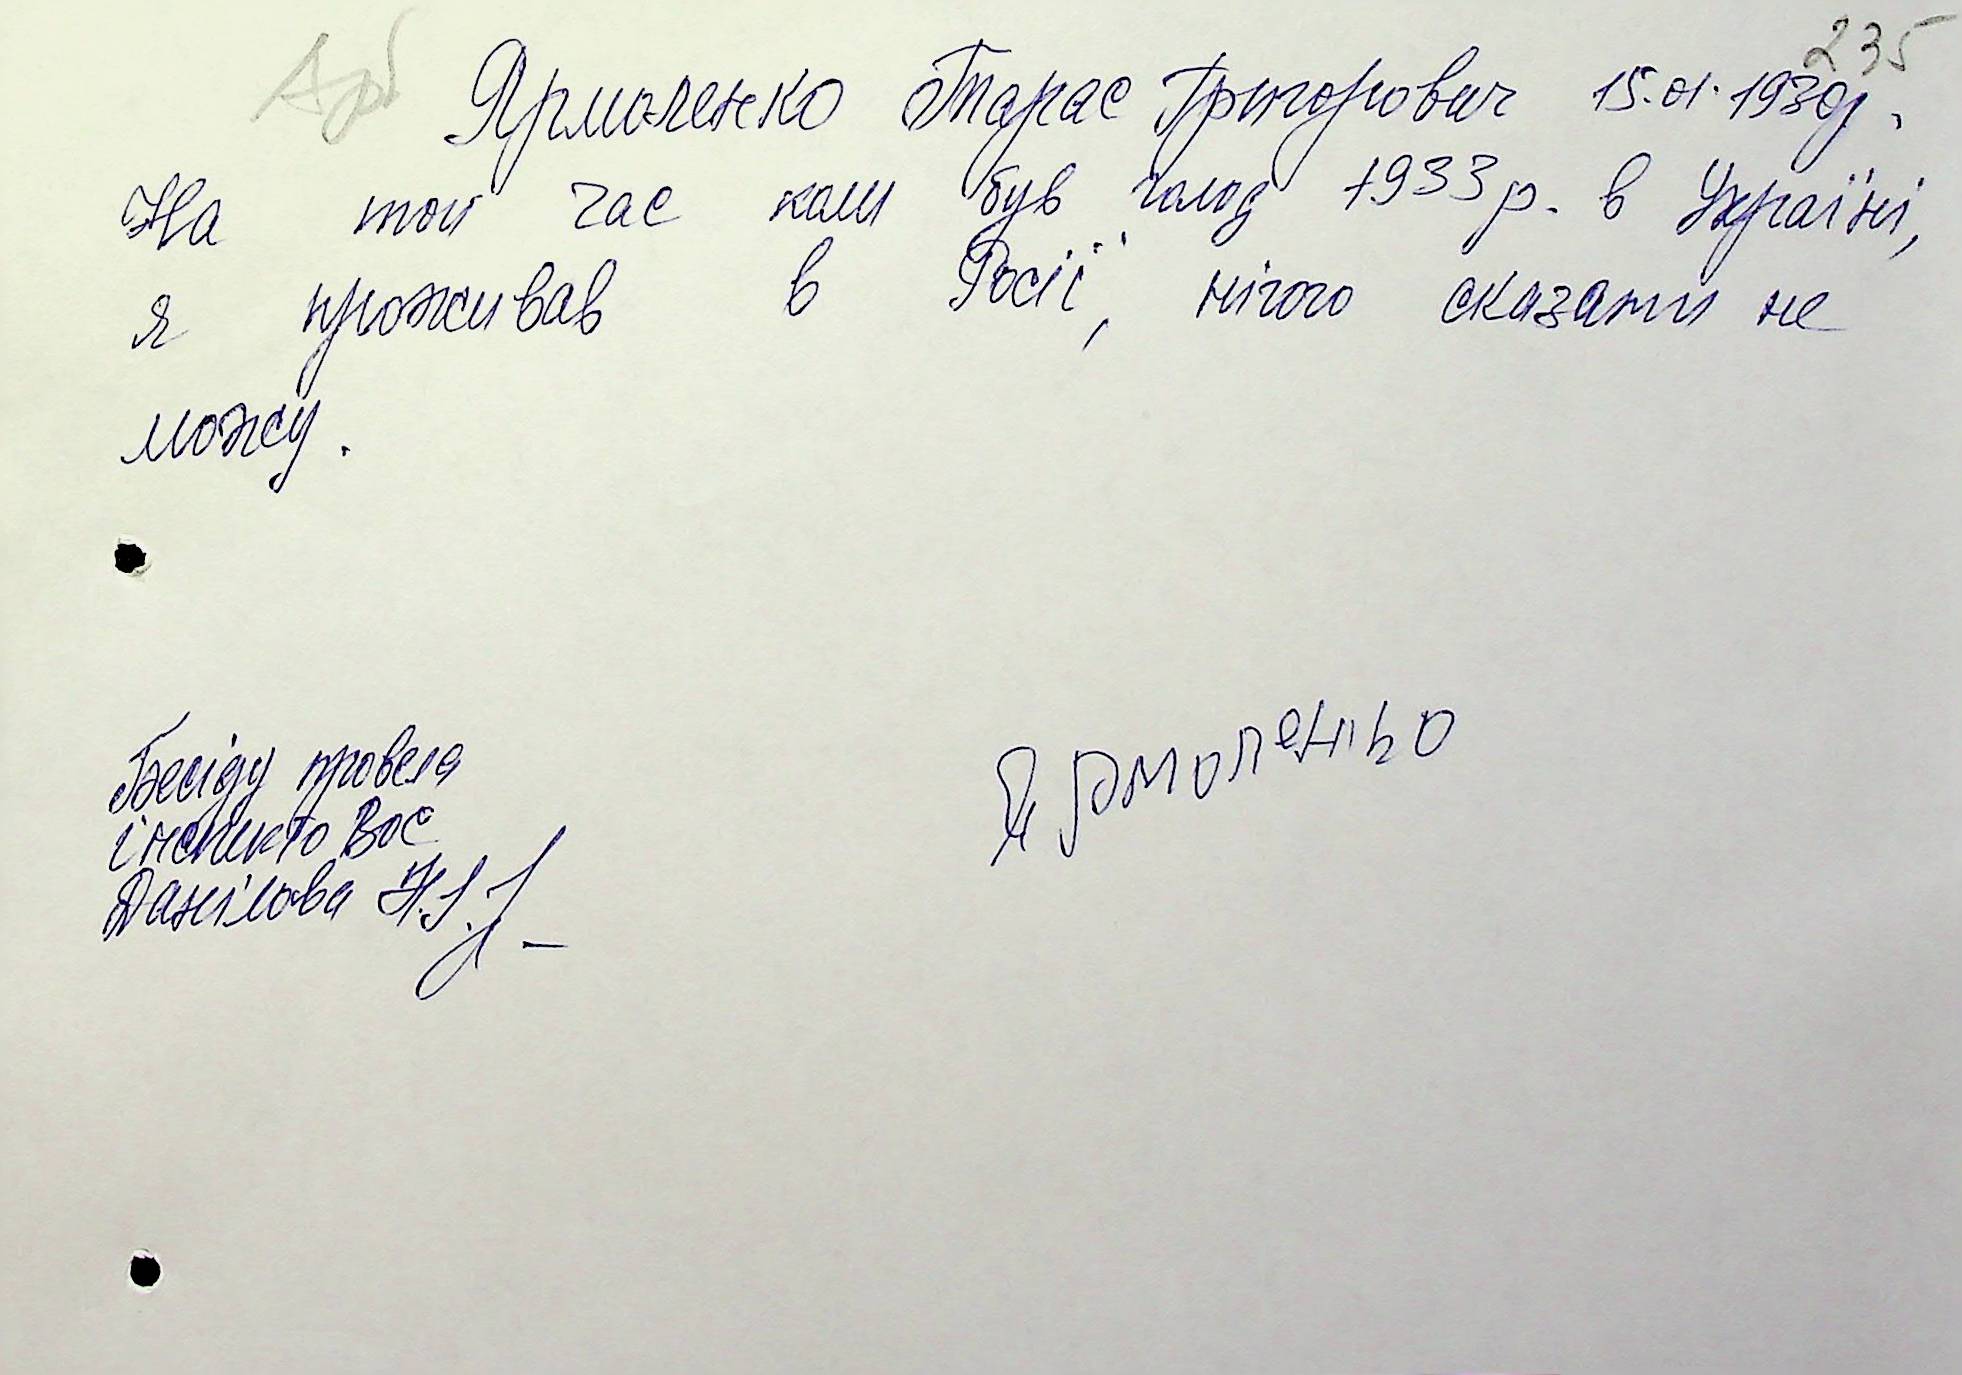 235
Ярмоленко Тарас Григорович 15.01.1930р.
На той час коли був голод 1933р. в Україні,
я проживав в Росії, нічого сказати не
можу.
Бесіду провела
Ярмоленко
інспекто ВОС
Данілова Н.І.